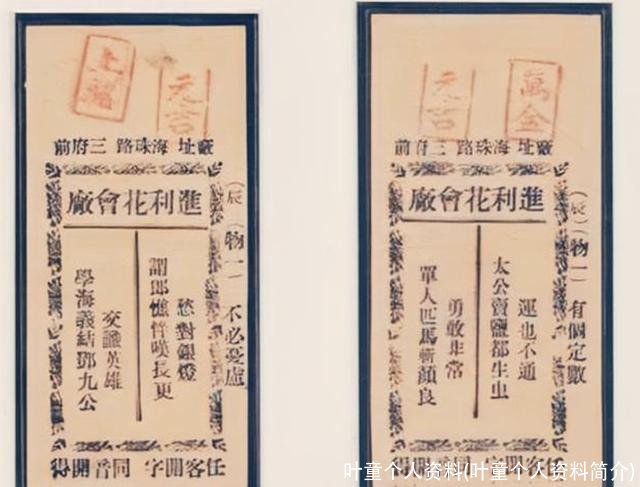 上
元吉
廠址 海珠路 三府前
進利花會廠
（辰）（物一）不必憂慮
愁對銀燈
謂郎憔悴嘆長更
交識英雄
學海義結鄧九公
任客開字 同音開得
萬金
元吉
廠址 海珠路 三府前
進利花會廠
（辰）（物一）有個定數
運也不通
太公賣鹽都生虫
勇敢非常
單人匹馬斬顏良
任客開字 同音開得
叶童个人资料(叶童个人资料简介)